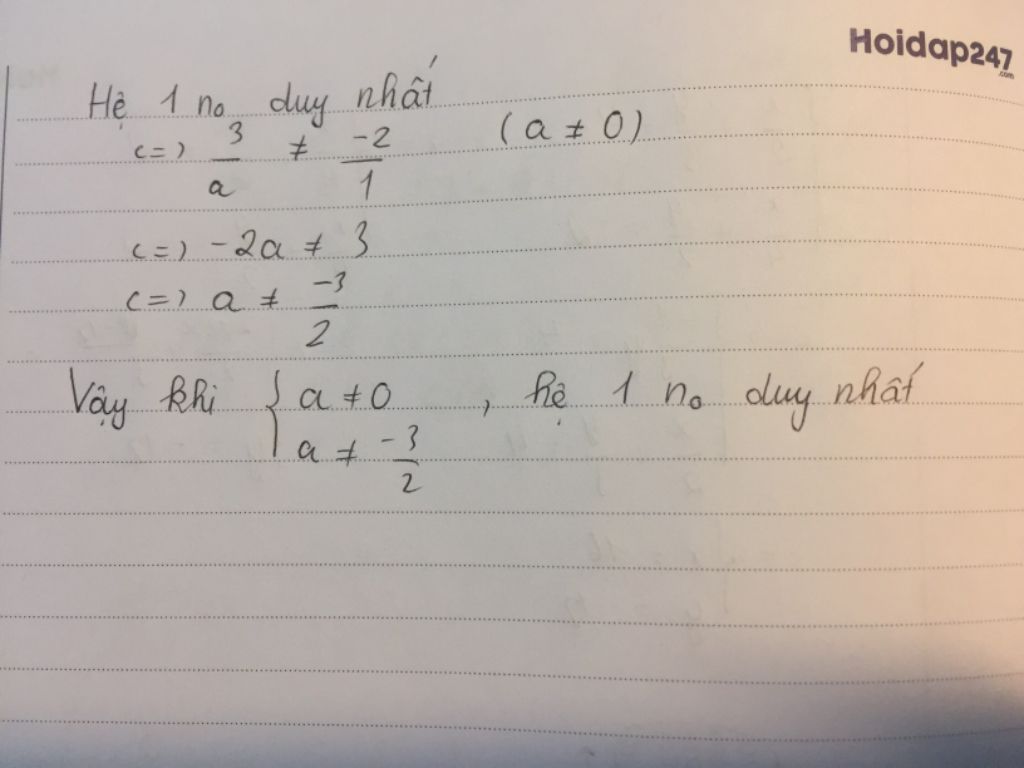 Hoidap247
.com
Hệ 1 no duy nhất
<=> 3/a ≠ -2/1 (a ≠ 0)
<=> -2a ≠ 3
<=> a ≠ -3/2
Vậy khi { a ≠ 0 , hệ 1 no duy nhất
a ≠ -3/2